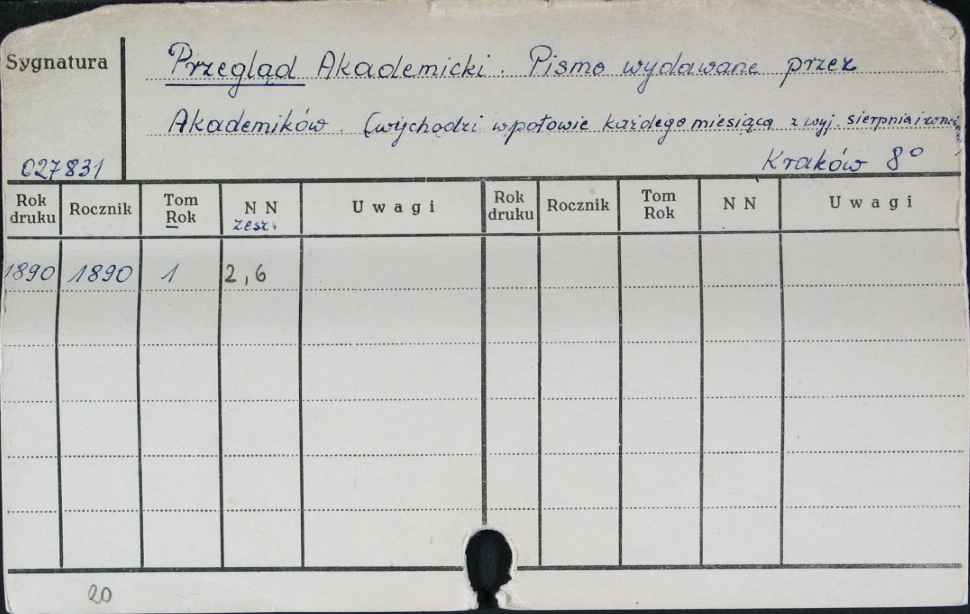 Sygnatura
Przegląd Akademicki. Pismo wydawane przez
Akademików. (wychodzi w połowie każdego miesiąca z wyj. sierpnia i
027831
Kraków 8°
Rok druku Rocznik Tom Rok N N zesz. Uwagi Rok druku Rocznik Tom Rok N N Uwagi
1890 1890 1 2, 6
20